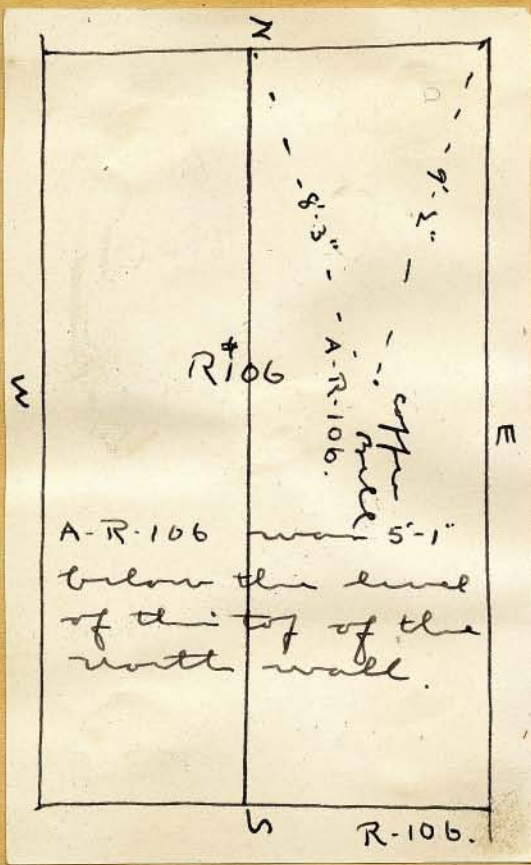 N
8'-3"
9'-2"
R#106
A-R-106.
copper
Bell
W
E
A-R-106 was 5'-1"
below the level
of the top of the
north wall.
S
R-106.